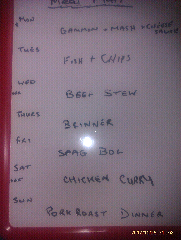 MEAL PLAN
MON
GAMMON + MASH + CHEESE SAUCE
TUES
FISH + CHIPS
WED
BEEF STEW
THURS
BRINNER
FRI
SPAG BOL
SAT
CHICKEN CURRY
SUN
PORK ROAST DINNER